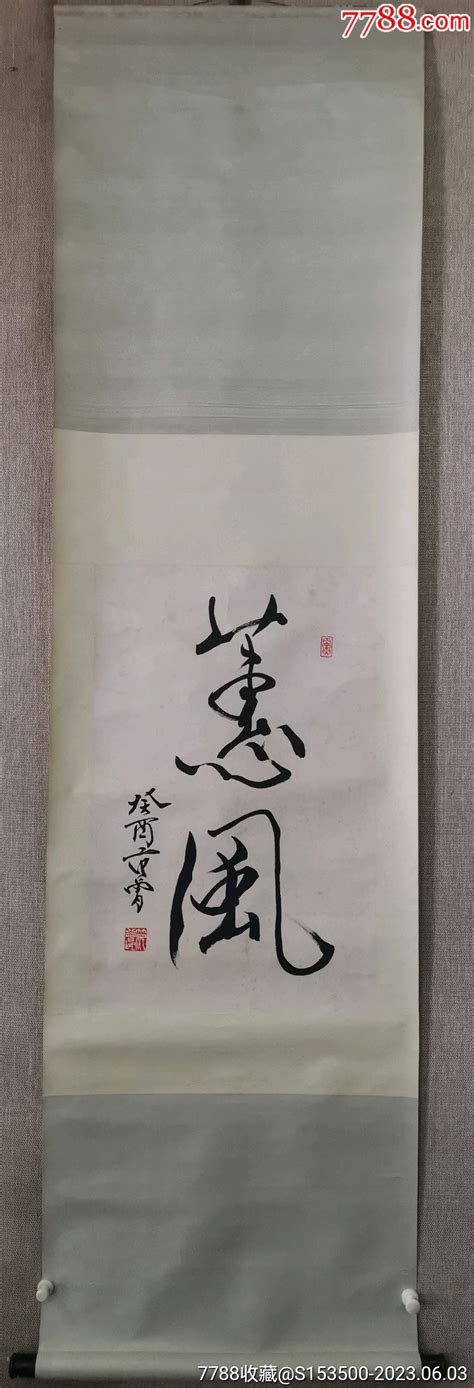 7788.com
蕙風
癸酉范曾
7788收藏@S153500-2023.06.03